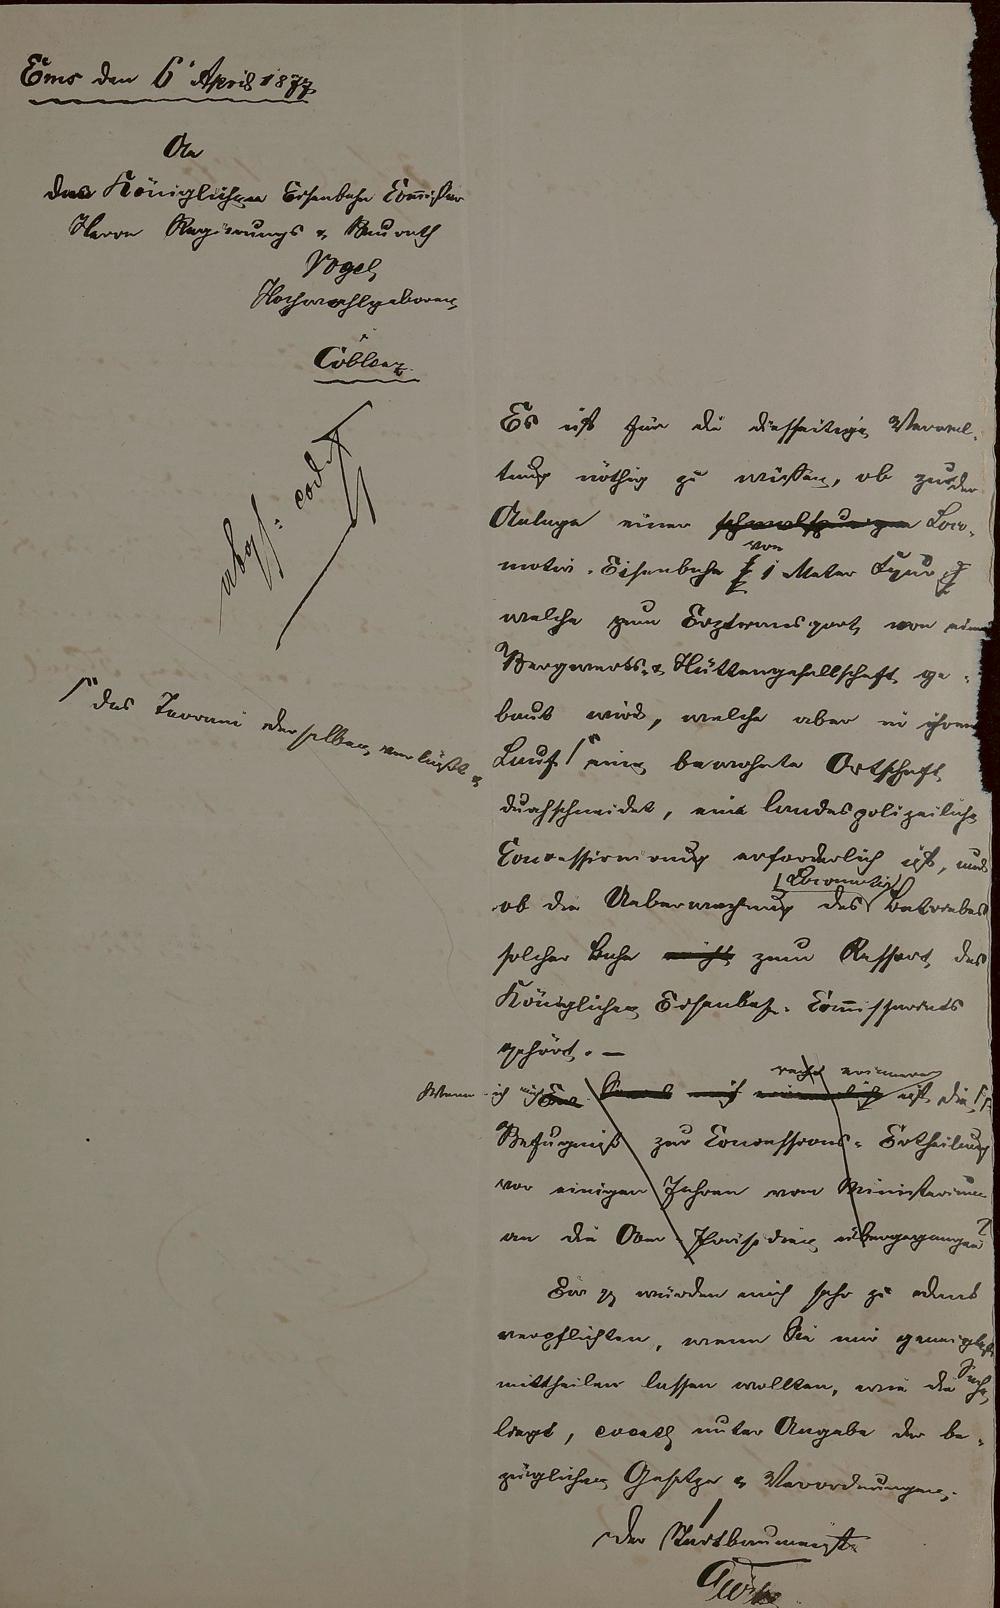 Ems den 6' April 1877
An
den Königlichen Eisenbahn Com̅issar
Herrn Regierungs & Baurath
Vogel
Hochwohlgeboren
Coblenz
abges: eod.
Es ist für die diesseitige Verwal-
tung nöthig zu wissen, ob zu der
Anlage einer schmalspurigen Loco-
motiv-Eisenbahn von 1 Meter Spur
welche zum Erztransport von einer
Bergwerks- & Hüttengesellschaft ge-
baut wird, welche aber in ihrem
das Terrain derselben verläßt &
Lauf eine bewohnte Ortschaft
durchschneidet, eine landespolizeiliche
Concessionirung erforderlich ist, und
Locomotiv
ob die Ueberwachung des Betriebes
solcher Bahn nicht zum Ressort des
Königlichen Eisenbahn-Com̅issariats
gehört. —
recht erinnere
Wenn ich mich ist die
Befugniß zur Concessions-Ertheilung
vor einigen Jahren vom Ministerium
an die Ober-Präsidien übergegangen?
Ew pp würden mich sehr zu Dank
verpflichten, wenn Sie mir geneigtest
mittheilen lassen wollten, wie die Sache
liegt, event. unter Angabe der be-
züglichen Gesetze & Verordnungen.
Der Stadtbaumeister